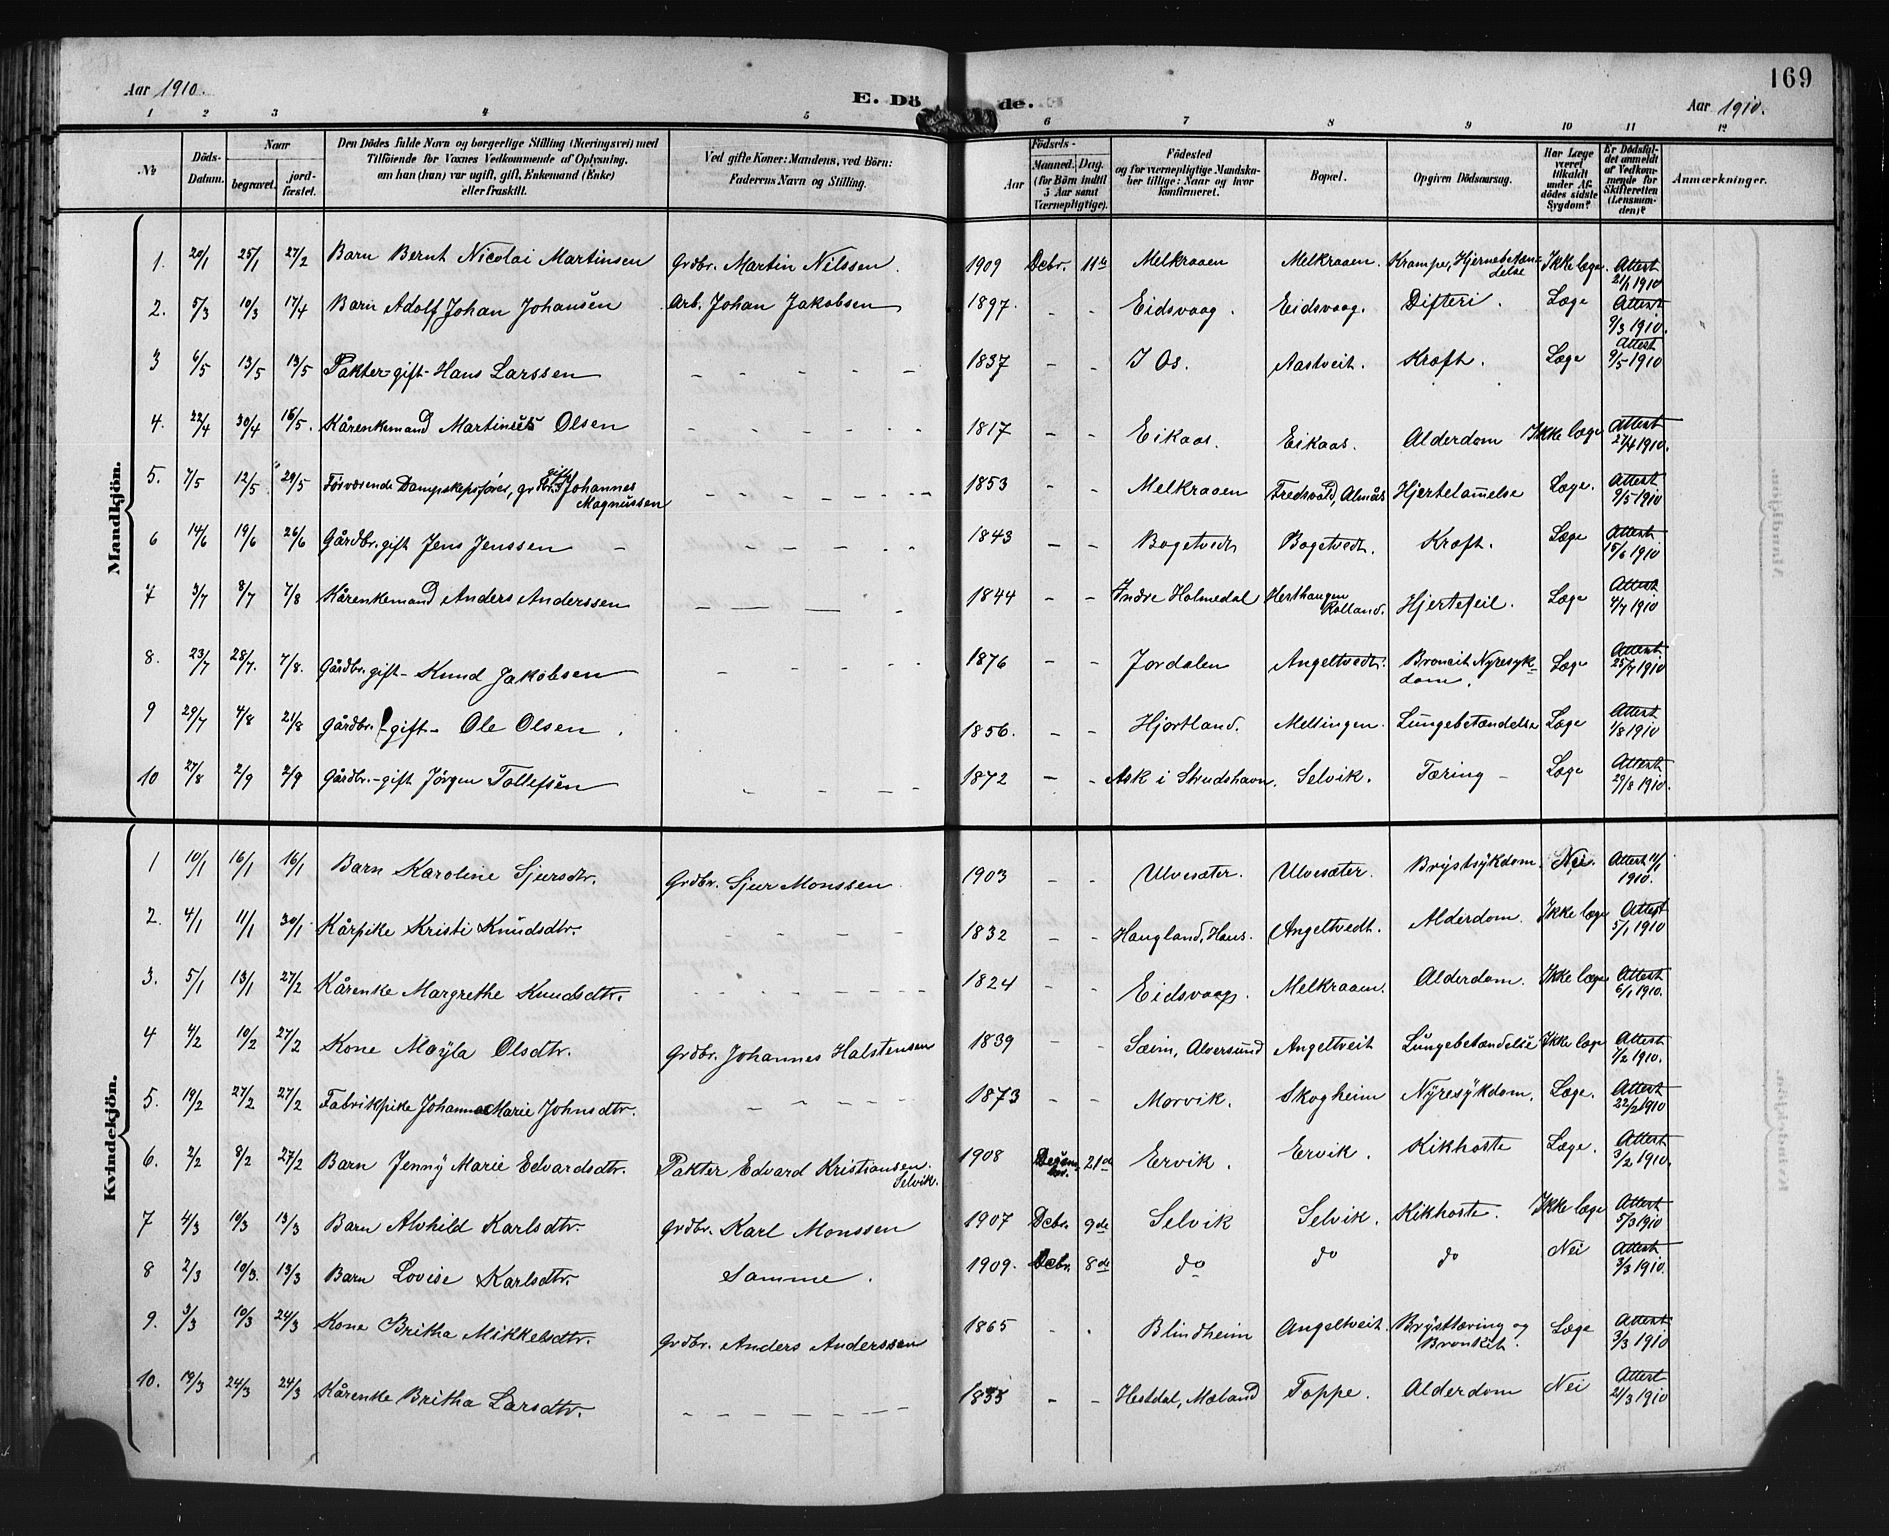 169
Aar 1910.
E. Dö de.
Aar 1910.
1 2 3 4 5 6 7 8 9 10 11 12
No
Döds-Datum.
Naar
begravet.
jord-fæstet.
Den Dödes fulde Navn og borgerlige Stilling (Næringsvei) med
Tilföiende for Voxnes Vedkommende af Oplysning,
om han (hun) var ugift, gift, Enkemand (Enke)
eller fraskilt.
Ved gifte Koner: Mandens, ved Börn:
Faderens Navn og Stilling.
Födsels-
Aar
Maaned.
Dag.
(for Börn indtil
5 Aar samt
Værnepligtige).
Födested
og for værnepligtige Mandska-
ber tillige: Naar og hvor
konfirmeret.
Bopæl.
Opgiven Dödsaarsag.
Har Læge
været
tilkaldt
under Af-
dödes sidste
Sygdom?
Er Dödsfal-
det anmeldt
af Vedkom-
mende for
Skifteretten
(Lensman-
den)?
Anmærkninger.
Mandkjön.
1. 20/1 25/1 27/2 Barn Bernt Nicolai Martinsen Grdbr. Martin Nilssen. 1909 Dcbr. 11te Melkraaen Melkraaen. Krampe, Hjernebetæn-delse Ikke læge. Attest 21/1 1910
2. 5/3 10/3 17/4 Barn Adolf Johan Johansen Arb. Johan Jakobsen 1897. - - Eidsvaag. Eidsvaag. Difteri. Læge Attest 9/3 1910.
3 6/5 13/5 13/5 Pakter-gift-Hans Larssen - - - - - 1837 - - I Os. Aastveit. Kræft. Læge Attest 9/5 1910
4. 22/4 30/4 16/5. Kårenkemand Martinus Olsen 1817 - - Eikaas. Eikaas. Alderdom Ikke læge Attest 27/4 1910.
5. 7/5 12/5 29/5 Forværende Dampskepsfører, gift Johannes Magnussen - - - - - 1853 - - Melkraaen Fredsvold, Almås Hjertelamelse Læge. Attest 9/5 1910
6 14/6 19/6 26/6 Gårdbr. gift Jens Jenssen - - - - - 1843 - - Bogetvedt Bogetvedt. Kræft. Læge Attest 15/6 1910
7 3/7 8/7 7/8 Kårenkemand Anders Anderssen - - - - 1844 - - Indre Holmedal Herthaugen Rolland. Hjertefeil. Læge Attest 4/7 1910
8. 23/7 28/7. 7/8. Gårdbr. gift- Knud Jakobsen - - - - 1876 - - Jordalen Angeltvedt. Broncit Nyresyk-dom. Læge Attest 25/7 1910
9 29/7 4/8 21/8 Gårdbr.-gift- Ole Olsen. 1856. - - Hjortland. Mellingen. Lungebetændelse Læge Attest 1/8 1910
10 27/8 2/9 2/9 Gårdbr.-gift Jörgen Tollefsen - - - - 1872 - - Ask i Strudshavn. Selvik. Tæring - Læge Attest 29/8 1910.
Kvindekjön.
1 10/1 16/1 16/1 Barn Karoline Sjursdtr. Grdbr. Sjur Monssen. 1903 - - Ulvesæter. Ulvesæter. Brystsykdom. Nei. Attest 11/1 1910.
2. 4/1 11/1 30/1 Kårpike Kristi Knudsdtr. - - - - 1832 - - Haugland, Haus. Angeltvedt. Alderdom. Ikke læge Attest 5/1 1910
3. 5/1 13/1 27/2 Kårenke Margrethe Knudsdtr. - - - - - 1824 - - Eidsvaag. Melkraaen. Alderdom. Ikke læge Attest 6/1 1910.
4 4/2 10/2 27/2 Kone Mayla Olsdtr. Grdbr. Johannes Halstensen 1839 - - Sæim, Alversund Angeltveit Lungebetændelse Ikke læge Attest 7/2 1910.
5. 19/2 27/2 27/2 Fabrikpike Johanna Marie Johnsdtr. - - - - 1873 - - Morvik. Skogheim Nyresykdom. Læge. Attest 22/2 1910
6. 2/2 8/2 27/2 Barn Jenny Marie Edvardsdtr. Pakter Edvard Kristiansen. Selvik. 1908 Decem-ber. 21de Ervik. Ervik. Kikhoste Læge. Attest 3/2 1910.
7 4/3 10/3 13/3 Barn Alvhild Karlsdtr. Grdbr. Karl Monssen 1907 Dcbr. 9de Selvik Selvik. Kikhoste. Ikke læge Attest 5/3 1910
8 2/3 10/3. 13/3 Barn Lovise Karlsdtr. Samme. 1909. Dcbr. 8de do do do Nei Attest 3/3 1910.
9. 3/3 10/3 24/3 Kone Britha Mikkelsdtr. Grdbr. Anders Anderssen 1865 - - Blindheim Angeltveit. Brysttæring og Bronkit. Læge Attest 3/3 1910
10. 19/3 24/3 24/3 Kårenke Britha Larsdtr. - - - - - 1835 - - Hestdal, Mæland Toppe. Alderdom Nei Attest 21/3 1910